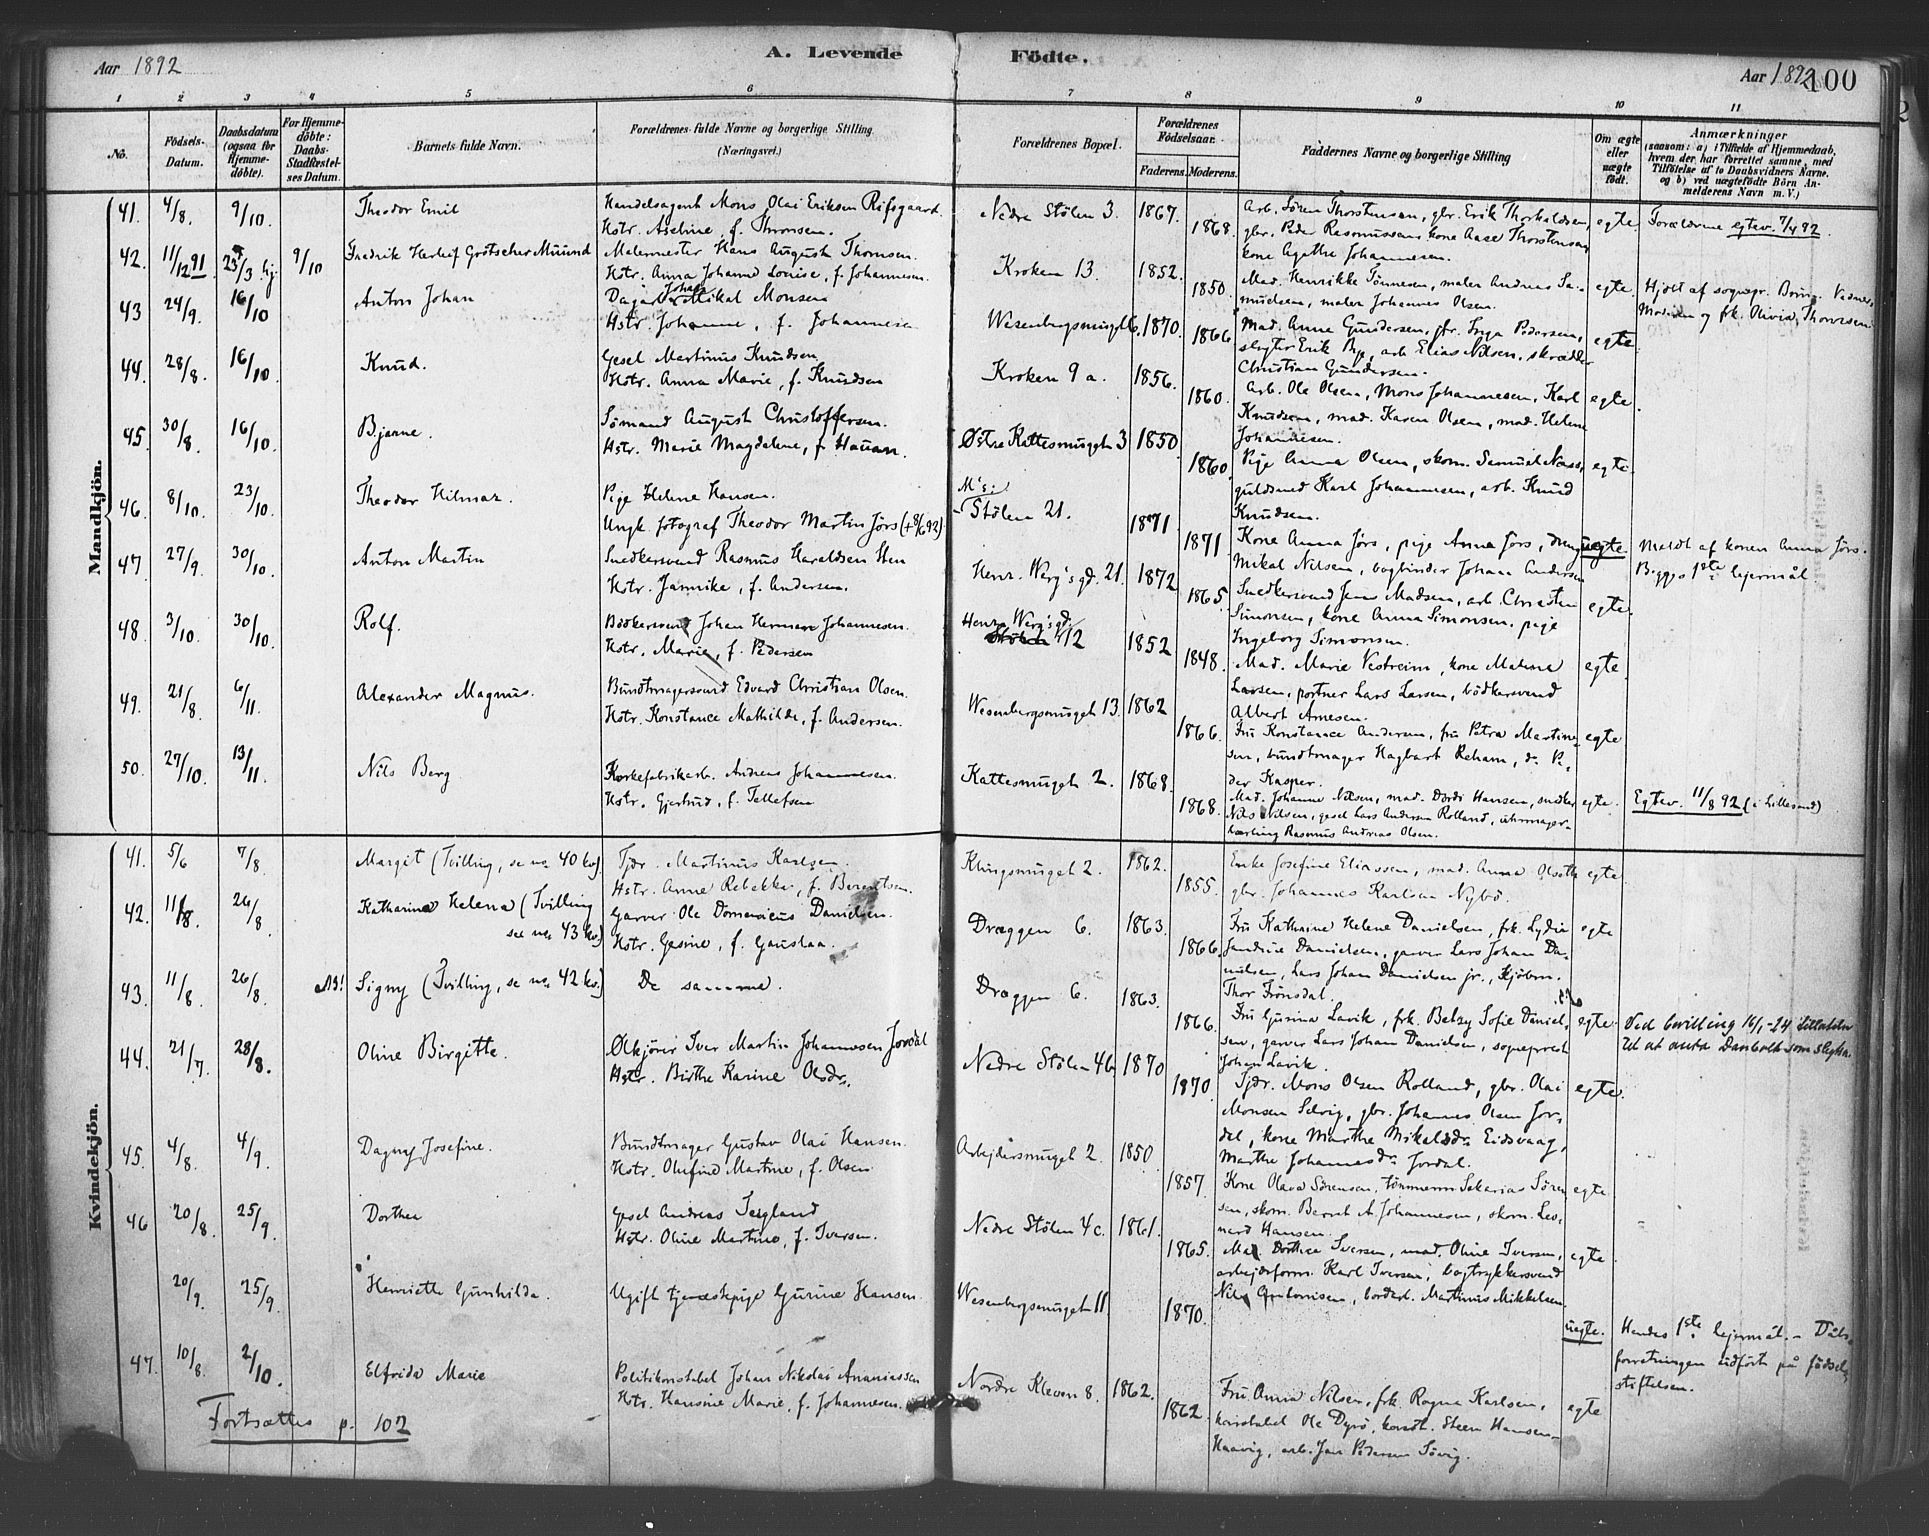 Aar 1892
A. Levende Födte.
Aar 1892
100
1 2 3 4 5 6 7 8 9 10 11
No.
Födsels-Datum.
Daabsdatum (ogsaa for Hjemme-döbte).
For Hjemme-döbte: Daabs-Stadfæstel-ses Datum.
Barnets fulde Navn.
Forældrenes fulde Navne og borgerlige Stilling (Næringsvei.)
Forældrenes Bopæl.
Forældrenes Födselsaar.
Faderens. Moderens.
Faddernes Navne og borgerlige Stilling
Om ægte eller uægte født.
Anmærkninger
(saasom: a) i Tilfælde af Hjemmedaab, hvem der har forrettet samme, med Tilföielse af to Daabsvidners Navne. og b) ved uægtefödte Börn An-melderens Navn m. V.)
Mandkjön.
41. 4/8. 9/10. Theodor Emil
Handelsagent Mons Olai Eriksen Rifsgaard.
Hstr. Aseline, f. Thronsen.
Nedre Stölen 3. 1867. 1868.
Arb. Sören Thorstensen, gbr. Erik Thorkildsen,
gbr. Peder Rasmussen, kone Aase Thorstensen,
kone Agathe Johannesen.
egte
Forældrene egtev. 7/4 92.
42. 11/12 91 25/3 hj. 9/10 Fredrik Herlief Grötscher Muund
Malermester Hans August Thomsen.
Hstr. Anna Johanne Louise, f. Johannesen.
Kroken 13. 1852. 1850.
Mad. Henrikke Tönnesen, maler Andreas Sa-
muelsen, maler Johannes Olsen.
egte.
Hjdbt af sognepr.
Moderen og frk. Olivia Thomsen
43 24/9. 16/10 Anton Johan
Dagarb. Johan Mikal Monsen
Hstr. Johanne, f. Johannesen
Wesenbergsmuget 6. 1870. 1866.
Mad. Anne Gundersen, fr. Inga Pedersen,
slagter Erik Bye, arb. Elias Nilsen, skrædder
Christian Gundersen.
egte
44. 28/8. 16/10. Knud.
Gesel Martinus Knudsen
Hstr. Anna Marie, f. Knudsen
Kroken 9 a. 1856. 1860.
Arb. Ole Olsen, Mons Johannesen, Karl
Knudsen, mad. Karen Olsen, mad. Helene
Johannesen.
egte.
45. 30/8. 16/10. Bjarne.
Sömand August Christoffersen.
Hstr. Marie Magdalene, f. Hauan.
Østre Kattesmuget 3 1850. 1860.
Pige Anna Olsen, skom. Samuel Næss,
guldsmed Karl Johannesen, arb. Knud
Knudsen.
egte.
46. 8/10. 23/10. Theodor Hilmar.
Pige Helene Hansen.
Ungk. fotograf Theodor Martin Jörs (+8/6 92).
M's: Stölen 21. 1871. 1871
Kone Anna Jörs, pige Anna Jörs, dreng
Mikal Nilsen, bogbinder Johan Andersen
uegte.
Meldt af konen Anna Jörs.
Begges 1ste lejermål.
47. 27/9. 30/10. Anton Martin
Snedkersvend Rasmus Haraldsen Sten
Hstr. Jannike, f. Andersen.
Henr. Werg's gd. 21. 1872 1865.
Snedkersvend Jens Madsen, arb. Christen
Simonsen, kone Anna Simonsen, pige
Ingeborg Simonsen.
egte.
48. 3/10. 30/10. Rolf.
Bödkersvend Johan Herman Johannesen.
Hstr. Marie, f. Pedersen
Henr. Werg's gd. 12 1852 1848.
Mad. Marie Vestreim, kone Malene
Larsen, portner Lars Larsen, bödkersvend
Albert Arnesen.
egte.
49. 21/8. 6/11. Alexander Magnus.
Bundtmagersvend Edvard Christian Olsen.
Hstr. Konstance Mathilde, f. Andersen.
Wesenbergsmuget 13. 1862 1866.
Fru Konstance Andersen, fru Petra Martine-
sen, bundtmager Hagbart Reham, do Pe-
der Kasper.
egte
50. 27/10. 13/11. Nils Berg
Korkefabrikarb. Andreas Johannesen.
Hstr. Gjertrud, f. Tellefsen
Kattesmuget 2. 1868. 1868.
Mad. Johanne Nilsen, mad. Dorte Hansen, snedker
Nils Nilsen, gesel Lars Andersen Rolland, uhrmager-
lærling Rasmus Andreas Olsen.
egte.
Egtev. 11/8 92 (i Lillesand)
Kvindekjön.
41. 5/6 7/8. Margit (Tvilling, se no. 40 kv.)
Tjdr. Martinus Karlsen.
Hstr. Anne Rebekka, f. Berentsen.
Klingsmuget 2. 1862. 1855.
Enke Josefine Eliassen, mad. Anna Olseth
gbr. Johannes Karlsen Nybö.
egte.
42. 11/8. 26/8. Katharina Helena (Tvilling
se no. 43 kv.)
Garver Ole Domenicus Danielsen.
Hstr. Gesine, f. Gaustaa.
Dræggen 6. 1863. 1866.
Fru Kathrine Helene Danielsen, frk. Lydia
Jendine Danielsen, garver Lars Johan Da-
nielsen, Lars Johan Danielsen jr., kjöbm.
Thor Frönsdal.
egte
43. 11/8. 26/8. NB! Signy (Tvilling, se no. 42 kv.)
De samme.
Dræggen 6. 1863. 1866.
Fru Gurina Lavik, frk. Betzy Sofie Daniel-
sen, garver Lars Johan Danielsen, sogneprest
Johan Lavik.
egte.
Ved bevilling 16/1-24 tillatelse
til at anta Danbolt som slegtsn.
44. 21/7. 28/8. Oline Birgitte.
Ølkjörer Iver Martin Johannesen Jordal
Hstr. Birthe Karine Olsdr.
Nedre Stölen 4b 1870 1870.
Tjdr. Mons Olsen Rolland, gbr. Olai
Monsen Selvig, gbr. Johannes Olsen Jor-
dal, kone Marthe Mikalsdr. Eidsvaag,
Marthe Johannesdr. Jordal.
egte.
45. 4/8. 4/9. Dagny Josefine.
Bundtmager Gustav Olai Hansen.
Hstr. Olufine Martine, f. Olsen
Arbejdersmuget 2. 1850 1857.
Kone Olava Sörensen, tömmerm. Sakarias Sören-
sen, skom. Bernt A. Johannesen, skom. Leo-
nard Hansen.
egte.
46 20/8. 25/9. Dorthea
Gesel Andreas Tesgland
Hstr. Oline Martine, f. Iversen.
Nedre Stölen 4c. 1861. 1865.
Mad. Dorthea Iversen, mad. Oline Iversen,
arbejdsform. Karl Iversen, bogtrykkersvend
Nils Antonisen, bordarb. Martinus Mikkelsen.
egte.
20/9. 25/9. Henriette Gunhilda.
Ugift tjenestepige Gurine Hansen.
Wesenbergsmuget 11. 1870.
uegte.
Hendes 1ste lejermål. - Dåbs-
forretningen udført på fødsels-
stiftelsen.
47. 10/8. 2/10. Elfrida Marie
Politikonstabel Johan Nikolai Ananiassen
Hstr. Hansine Marie, f. Johannesen.
Nordre Kleven 8. 1862. 1862.
Fru Anna Nilsen, frk. Ragna Karlsen,
konstabel Ole Dyrö, konst. Steen Hansen
Haavig, arb. Jan Pedersen Sövig.
egte
Fortsættes p. 102